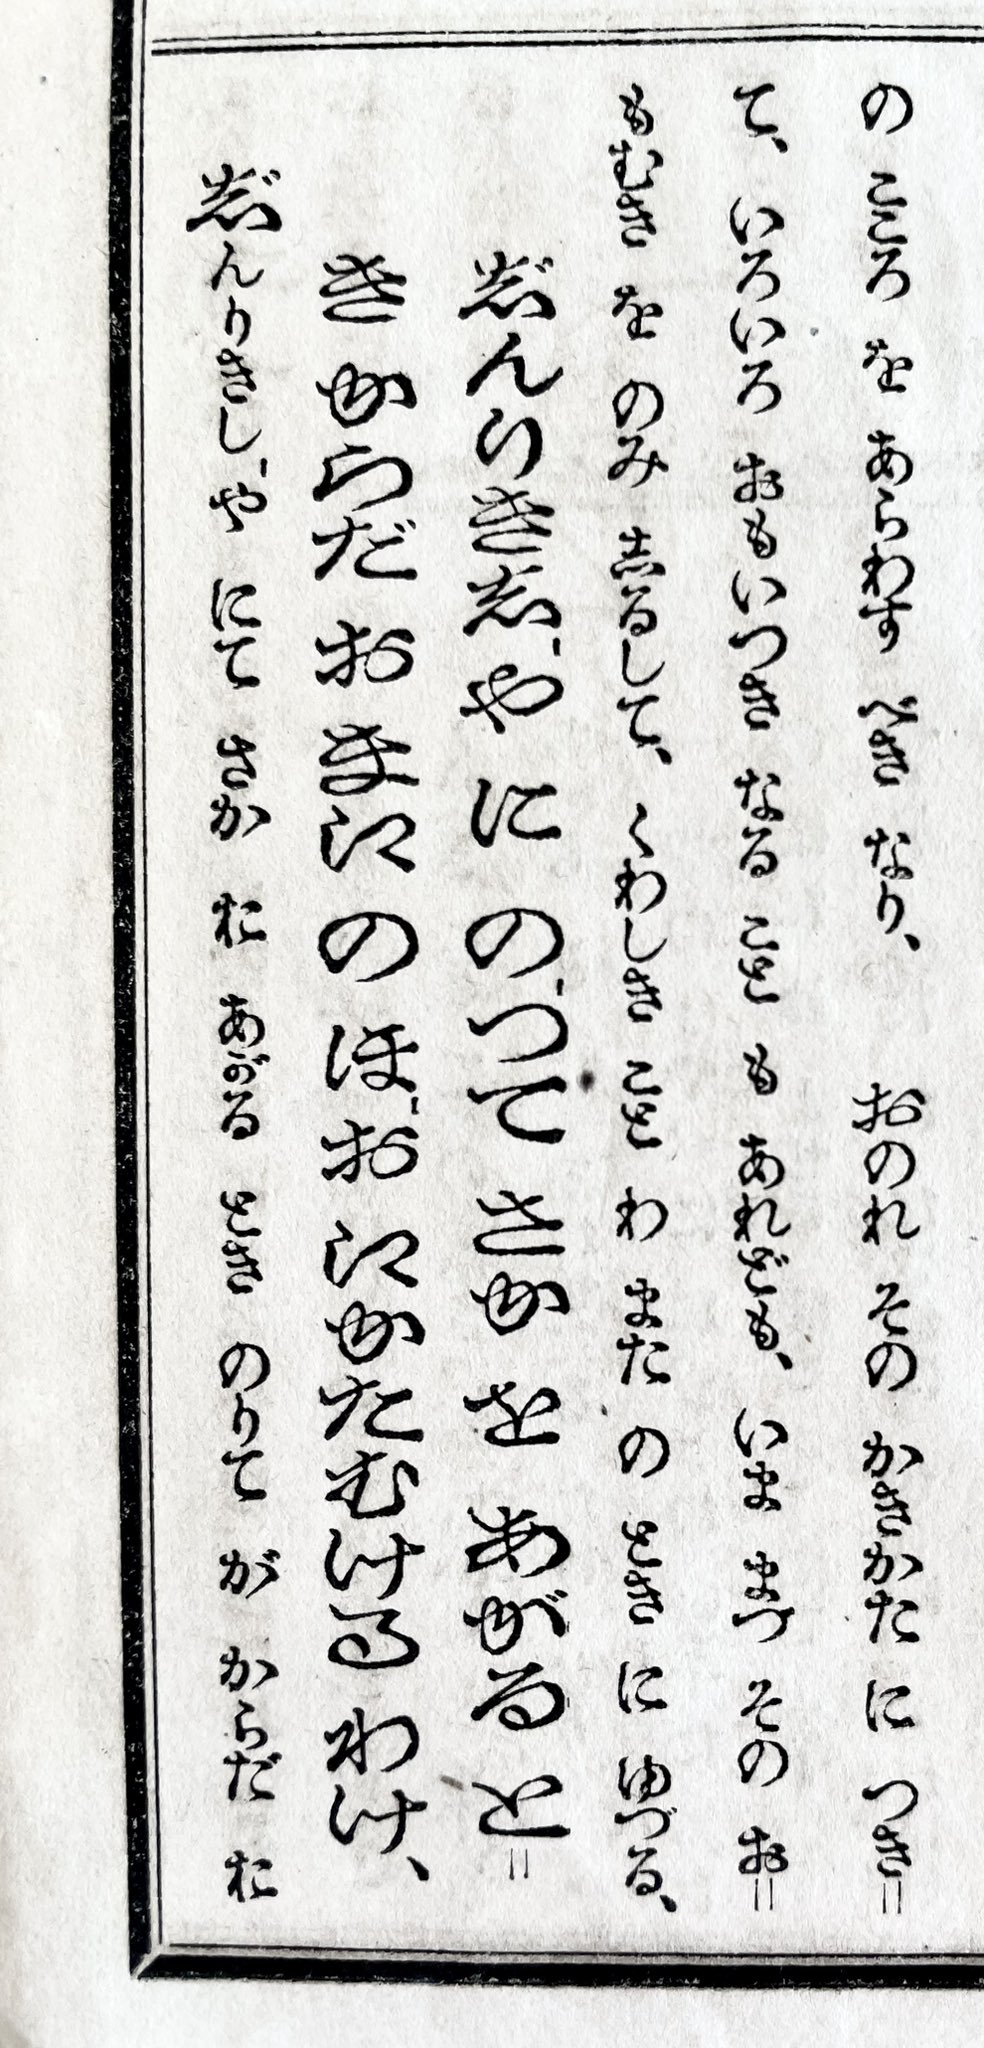 の こころ を あらわす べき なり、 おのれ その かきかた に つき＝
て、 いろいろ おもいつき なる こと も あれども、 いま まづ その お＝
もむき を のみ しるして、 くわしき こと わ また の とき に ゆづる、
じんりきしゝや に のゝつて さか を あがる と＝
き からだ お まえ の ほゝお えかたむける わけ、
じんりきしゝや にて さか お あがる とき のりて が からだ お